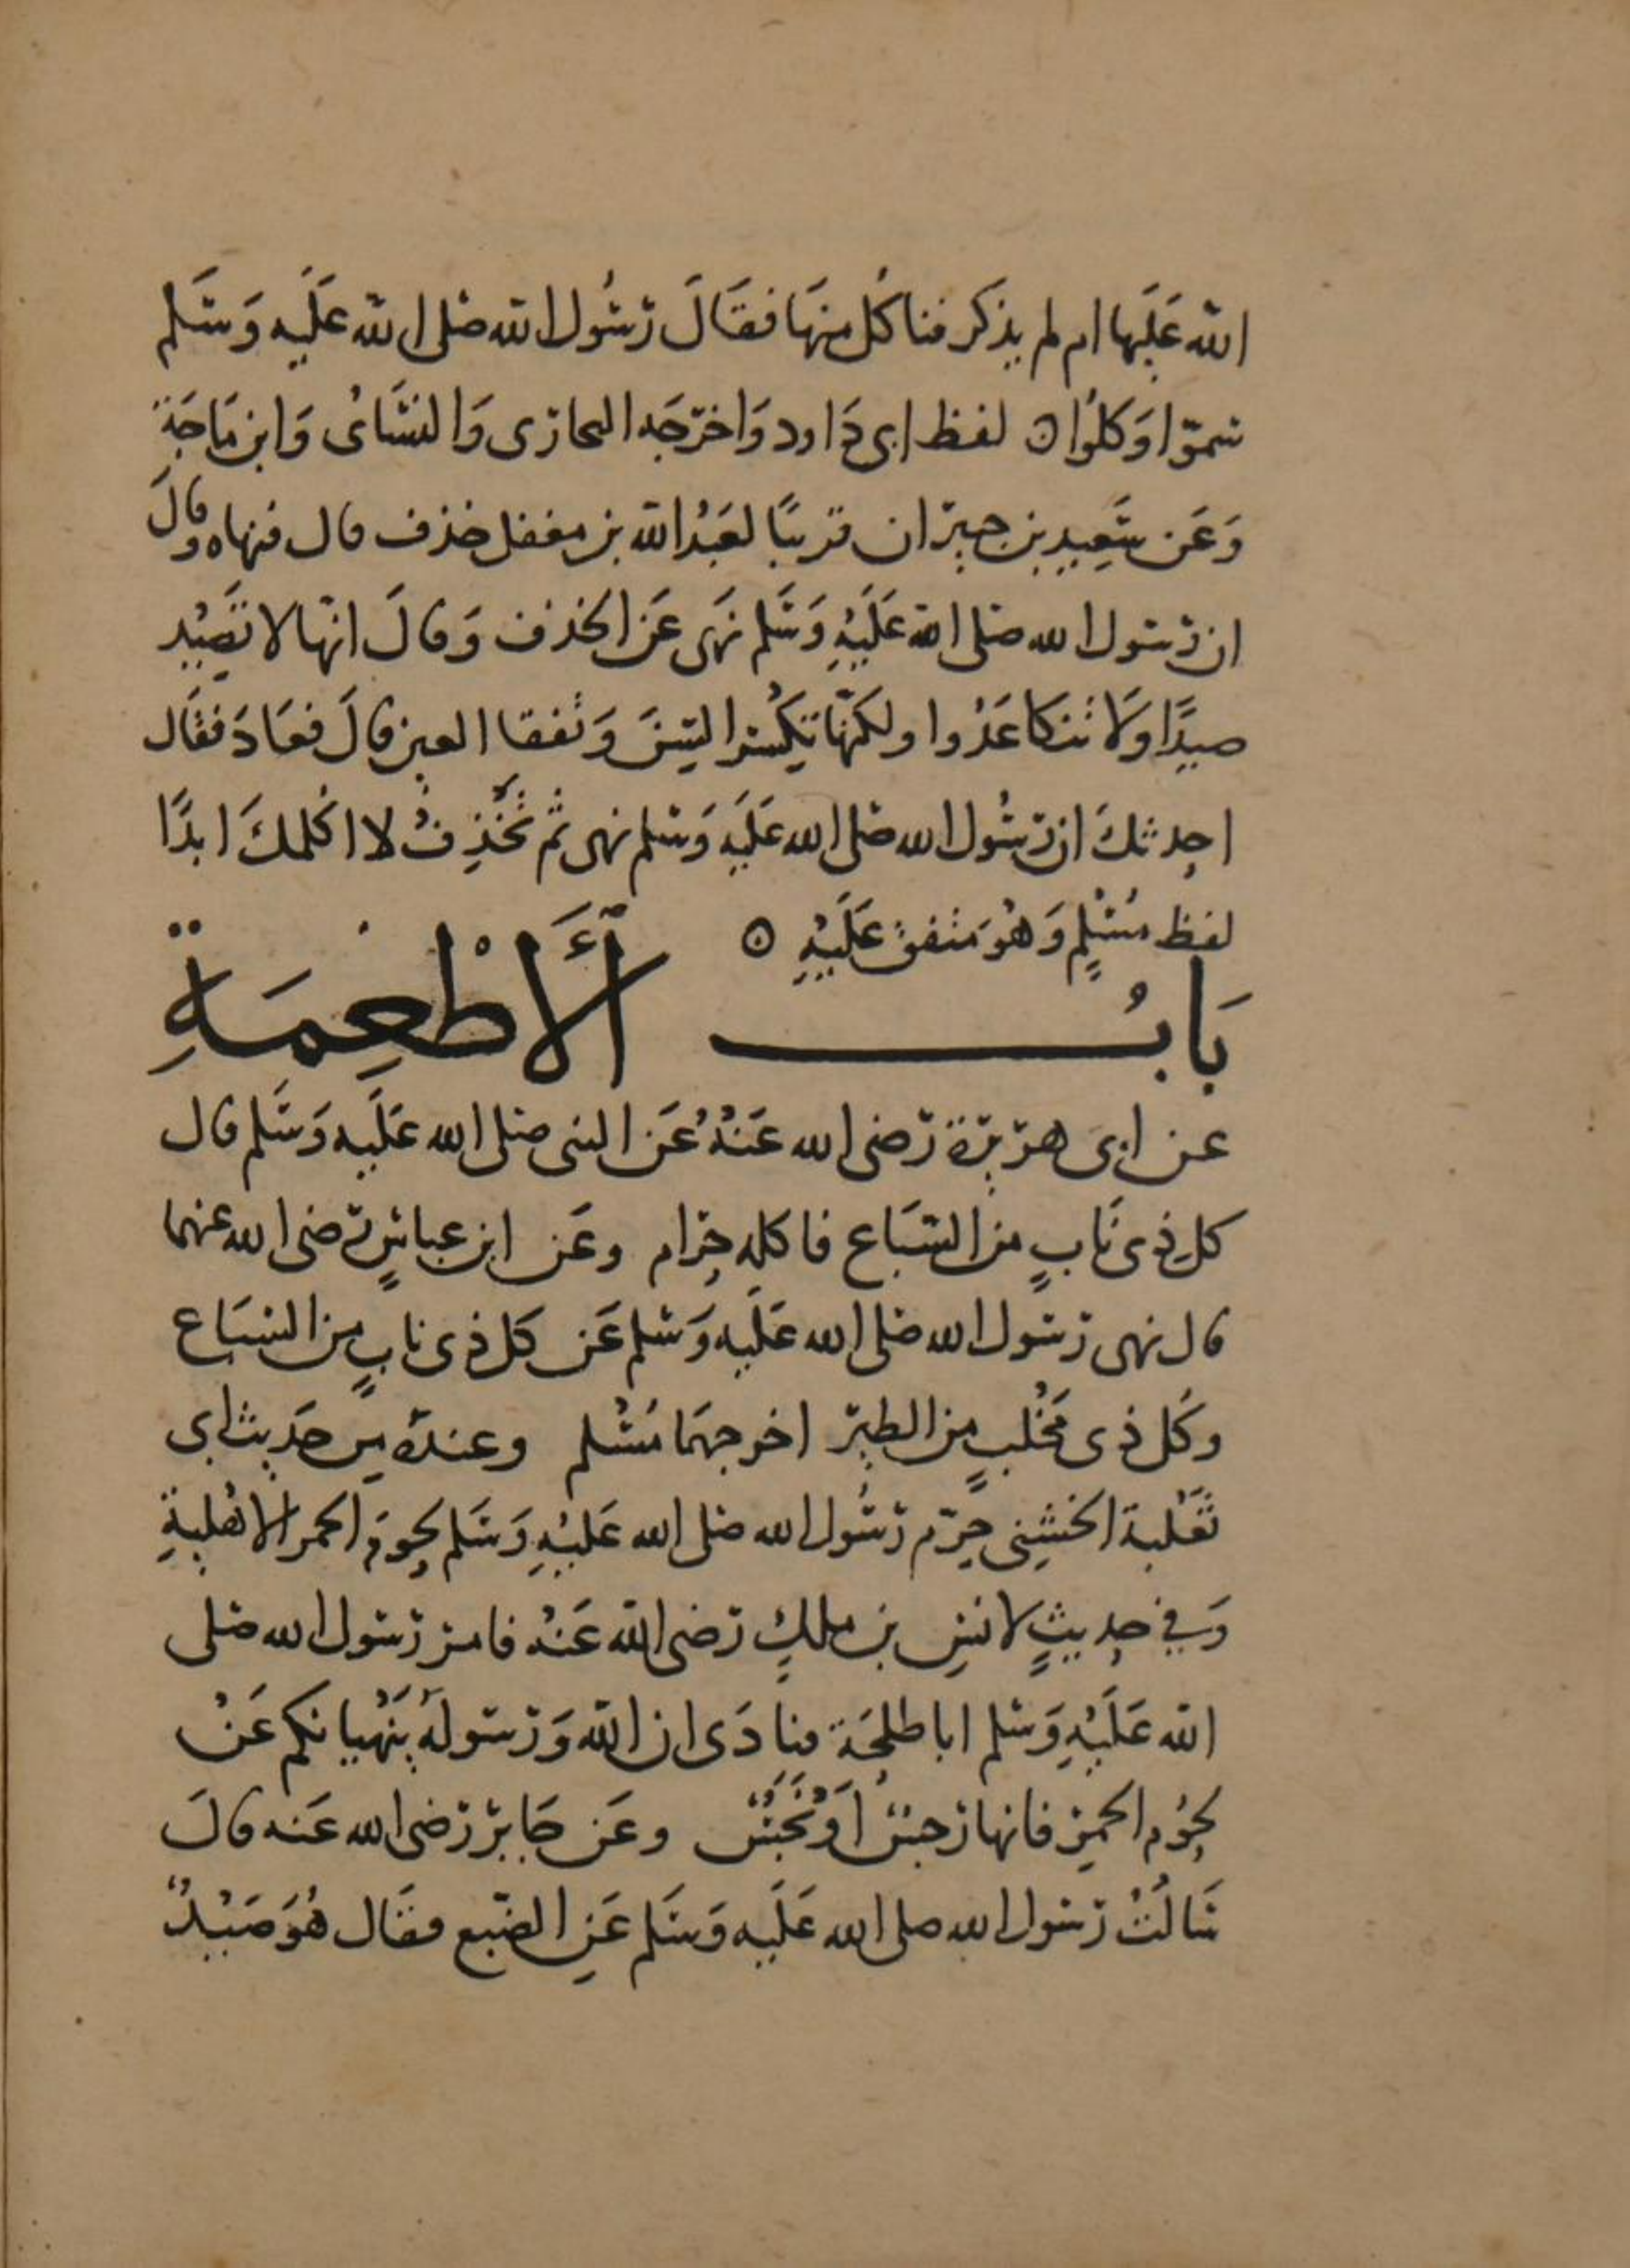 الله عَلَيها ام لم يذكر فناكُل منهَا فقَالَ رَسُول الله صَلى الله عَلَيه وَسَلم
سموّا وَكلوُا ه لفظ ابى دَاود وَاخرَجَه البخارى وَالنسَّائ وَابن مَاجَة
وَعَن سَعِيد بن جبير ان قريبًا لعَبْد الله بن مغفل خذف قال فنهاه وقالَ
ان رسول الله صَلى الله عَلَيْهِ وَسَلم نَهى عَن الخذف وَقالَ انهّا لا تَصِيْد
صيدًا وَلا تنكا عَدُوا ولكنّها تكْسر السِّنَ وَتفقا العين قالَ فعَادَ فقَال
احدثكَ ان رسُول الله صَلى الله عَلَيه وَسلم نهى ثم تَخْذِفُ لا اكلمكَ ابدًا
لفظ مُسْلمٍ وَهُوَ متفق عَلَيْهِ ه
بَابُ الأَطْعِمَةِ
عن ابى هريرَة رَضى الله عَنْهُ عَن النبى صَلى الله عَلَيه وَسَلم قال
كل ذى نَابٍ من السّبَاع فاكله حرَام وعَن ابن عباسٍ رضى الله عنهما
قال نهى رَسول الله صَلى الله عَلَيه وَسلم عَن كل ذى نابٍ من السّبَاع
وكَل ذى مخْلبٍ من الطير اخرجهمَا مُسْلم وعنده من حَديث ابى
ثَعْلبة الخشنِى حرّم رَسُول الله صَلى الله عَلَيْهِ وَسَلم لحومَ الحمر الاهْلية
وَفي حديثٍ لانسِ بن ملكٍ رَضى الله عَنْهُ فامر رَسول الله صَلى
الله عَلَيْهِ وَسلم ابا طلحَة فنادَى ان الله وَرَسوله يَنْهيانكم عَنْ
لحوُم الحمر فانها رجسٌ أوْ نَجَسٌ وعَن جَابر رَضى الله عَنه قالَ
سَالتُ رَسول الله صلى الله عَلَيه وَسَلم عَنِ الضبّع فقَال هُوَ صَيْدٌ